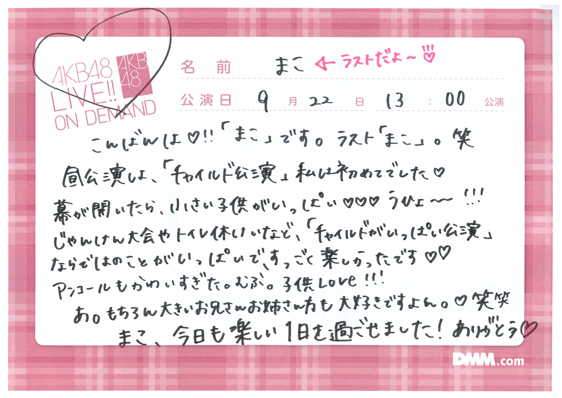 AKB48
LIVE!!
ON DEMAND
AKB
48
名前 まこ ←ラストだよ〜♡
公演日 9月22日 13:00公演
こんばんは♡!!「まこ」です。ラスト「まこ」。笑
昼公演は、「チャイルド公演」私は初めてでした♡
幕が開いたら、小さい子供がいっぱい♡♡♡うひょ〜!!!
じゃんけん大会やトイレ休けいなど、「チャイルドがいっぱい公演」
ならではのことがいっぱいで、すっごく楽しかったです♡♡
アンコールもかわいすぎた。むふ。子供Love!!!
あ。もちろん大きいお兄さんお姉さん方も大好きですよん。♡笑笑
まこ、今日も楽しい1日を過ごせました!ありがとう♡
DMM.com